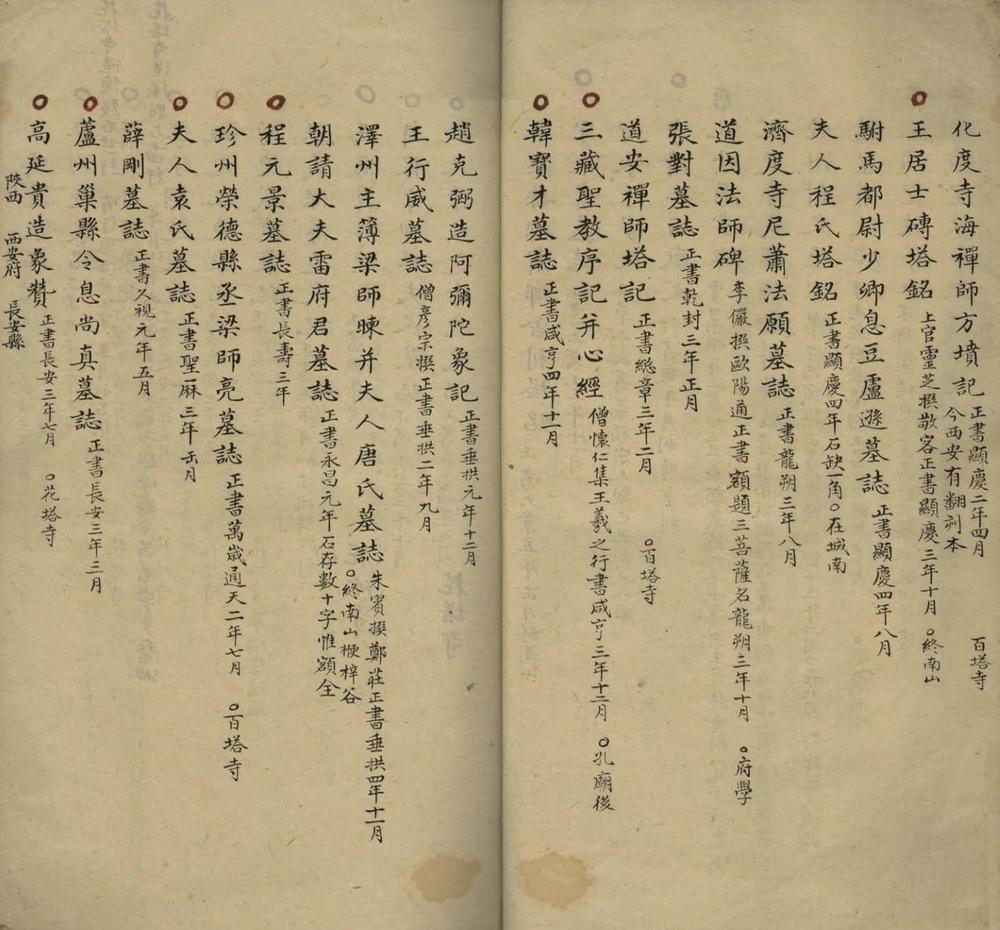 化度寺海禪師方墳記 正書顯慶二年四月 今西安有翻刻本 百塔寺
王居士磚塔銘 上官靈芝撰敬客正書顯慶三年十月 〇終南山
駙馬都尉少卿息豆盧遜墓誌 正書顯慶四年八月
夫人程氏塔銘 正書顯慶四年石缺一角〇在城南
濟度寺尼蕭法願墓誌 正書龍朔三年八月
道因法師碑 李儼撰歐陽通正書額題三菩薩名龍朔三年十月 〇府學
張對墓誌 正書乾封三年正月
道安禪師塔記 正書總章三年二月 〇百塔寺
三藏聖教序記并心經 僧懷仁集王羲之行書咸亨三年十二月 〇孔廟後
韓寶才墓誌 正書咸亨四年十一月
趙克弼造阿彌陀象記 正書垂拱元年十二月
王行威墓誌 僧彥宗撰正書垂拱二年九月
澤州主簿梁師暕并夫人唐氏墓誌 朱賓撰鄭莊正書垂拱四年十一月 〇終南山楩梓谷
朝請大夫雷府君墓誌 正書永昌元年石存數十字惟額全
程元景墓誌 正書長壽三年
珍州榮德縣丞梁師亮墓誌 正書萬歲通天二年七月 〇百塔寺
夫人袁氏墓誌 正書聖厤三年 月
薛剛墓誌 正書久視元年五月
蘆州巢縣令息尚真墓誌 正書長安三年二月
高延貴造象贊 正書長安三年七月 〇花塔寺
陝西 西安府 長安縣